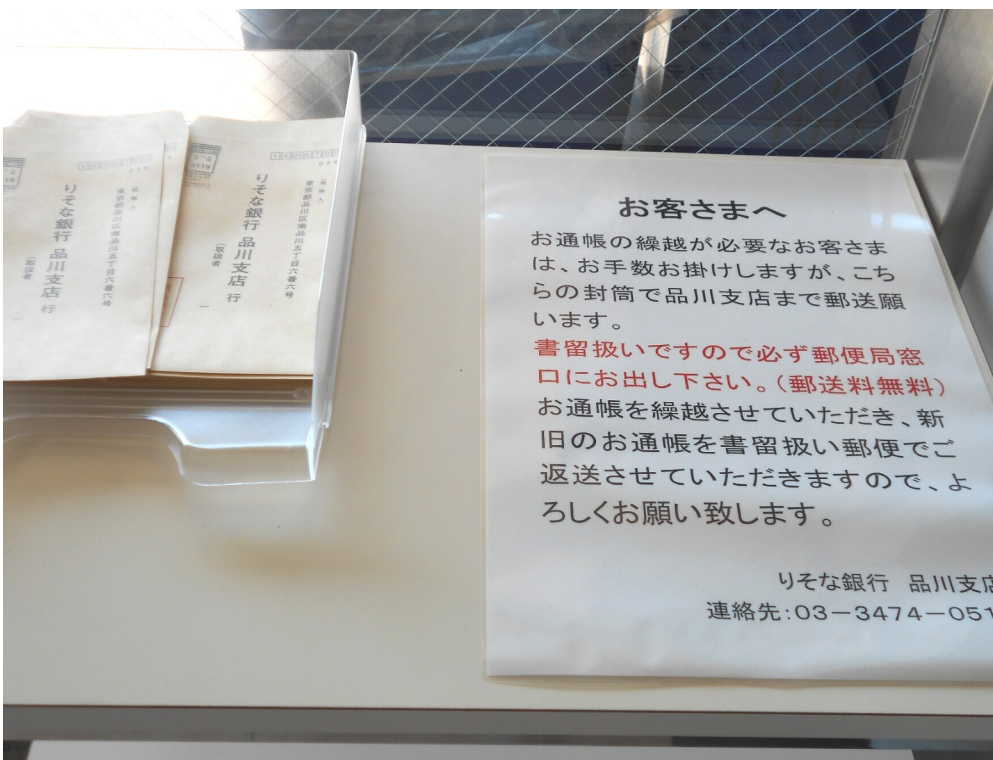 りそな銀行 品川支店 行
(取扱者 )
東京都品川区南品川五丁目六番六号
りそな銀行 品川支店 行
(取扱者 )
お客さまへ
お通帳の繰越が必要なお客さま
は、お手数お掛けしますが、こち
らの封筒で品川支店まで郵送願
います。
書留扱いですので必ず郵便局窓
口にお出し下さい。(郵送料無料)
お通帳を繰越させていただき、新
旧のお通帳を書留扱い郵便でご
返送させていただきますので、よ
ろしくお願い致します。
りそな銀行 品川支店
連絡先:03-3474-051